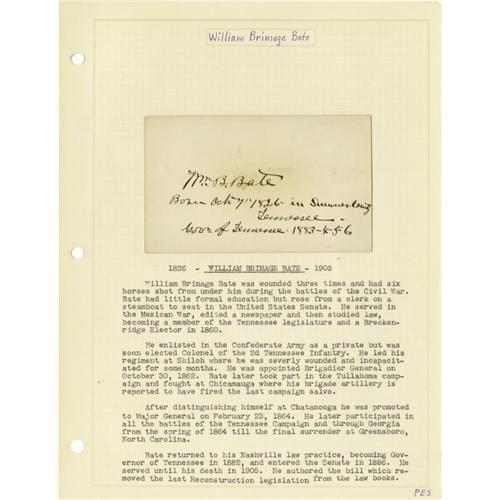 William Brimage Bate
Wm B. Bate
Born Oct 7th 1826 in Sumner County
Tennessee
Gov'r of Tennessee - 1883-4-5-6
1826 - WILLIAM BRIMAGE BATE - 1905
William Brimage Bate was wounded three times and had six
horses shot from under him during the battles of the Civil War.
Bate had little formal education but rose from a clerk on a
steamboat to seat in the United States Senate. He served in
the Mexican War, edited a newspaper and then studied law,
becoming a member of the Tennessee legislature and a Brecken-
ridge Elector in 1860.
He enlisted in the Confederate Army as a private but was
soon elected Colonel of the 2d Tennessee Infantry. He led his
regiment at Shiloh where he was severly wounded and incapacit-
ated for some months. He was appointed Brigadier General on
October 30, 1862. Bate later took part in the Tullahoma camp-
aign and fought at Chicamauga where his brigade artillery is
reported to have fired the last campaign salvo.
After distinguishing himself at Chatanooga he was promoted
to Major General on February 23, 1864. He later participated in
all the battles of the Tennessee Campaign and through Georgia
from the spring of 1864 till the final surrender at Greensboro,
North Carolina.
Bate returned to his Nashville law practice, becoming Gov-
ernor of Tennessee in 1882, and entered the Senate in 1886. He
served until his death in 1905. He authored the bill which re-
moved the last Reconstruction legislation from the law books.
PES